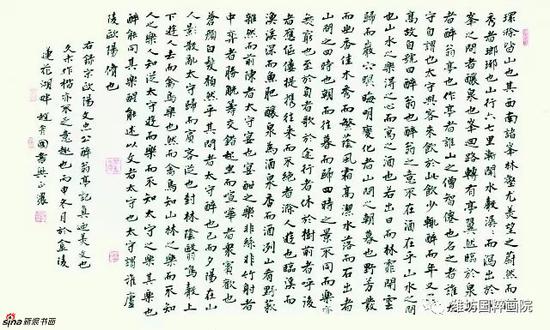 環滁皆山也其西南諸峯林壑尤美望之蔚然而深
秀者瑯琊也山行六七里漸聞水聲潺潺而瀉出於兩
峯之間者釀泉也峯回路轉有亭翼然臨於泉上
者醉翁亭也作亭者誰山之僧智僊也名之者誰太
守自謂也太守與客來飲於此飲少輒醉而年又最
高故自號曰醉翁也醉翁之意不在酒在乎山水之間
也山水之樂得之心而寓之酒也若夫日出而林霏開雲
歸而巖穴暝晦明變化者山間之朝暮也野芳發
而幽香佳木秀而繁陰風霜高潔水落而石出者
山間之四時也朝而往暮而歸四時之景不同而樂亦
無窮也至於負者歌於塗行者休於樹前者呼後
者應傴僂提攜往來而不絕者滁人遊也臨溪而
漁溪深而魚肥釀泉為酒泉香而酒洌山肴野蔌
雜然而前陳者太守宴也宴酣之樂非絲非竹射者
中弈者勝觥籌交錯起坐而諠譁者眾賓歡也
蒼顏白髮頹然乎其間者太守醉也已而夕陽在山
人影散亂太守歸而賓客從也樹林陰翳鳴聲上
下遊人去而禽鳥樂也然而禽鳥知山林之樂而不知
人之樂人知從太守遊而樂而不知太守之樂其樂也
醉能同其樂醒能述以文者太守也太守謂誰廬
陵歐陽脩也
右錄宋歐陽文忠公醉翁亭記真迹美文也
久未作楷亦不之意趣也丙申冬月於金陵
蓮花湖畔趙國書
sina新浪书画
潍坊国粹画院